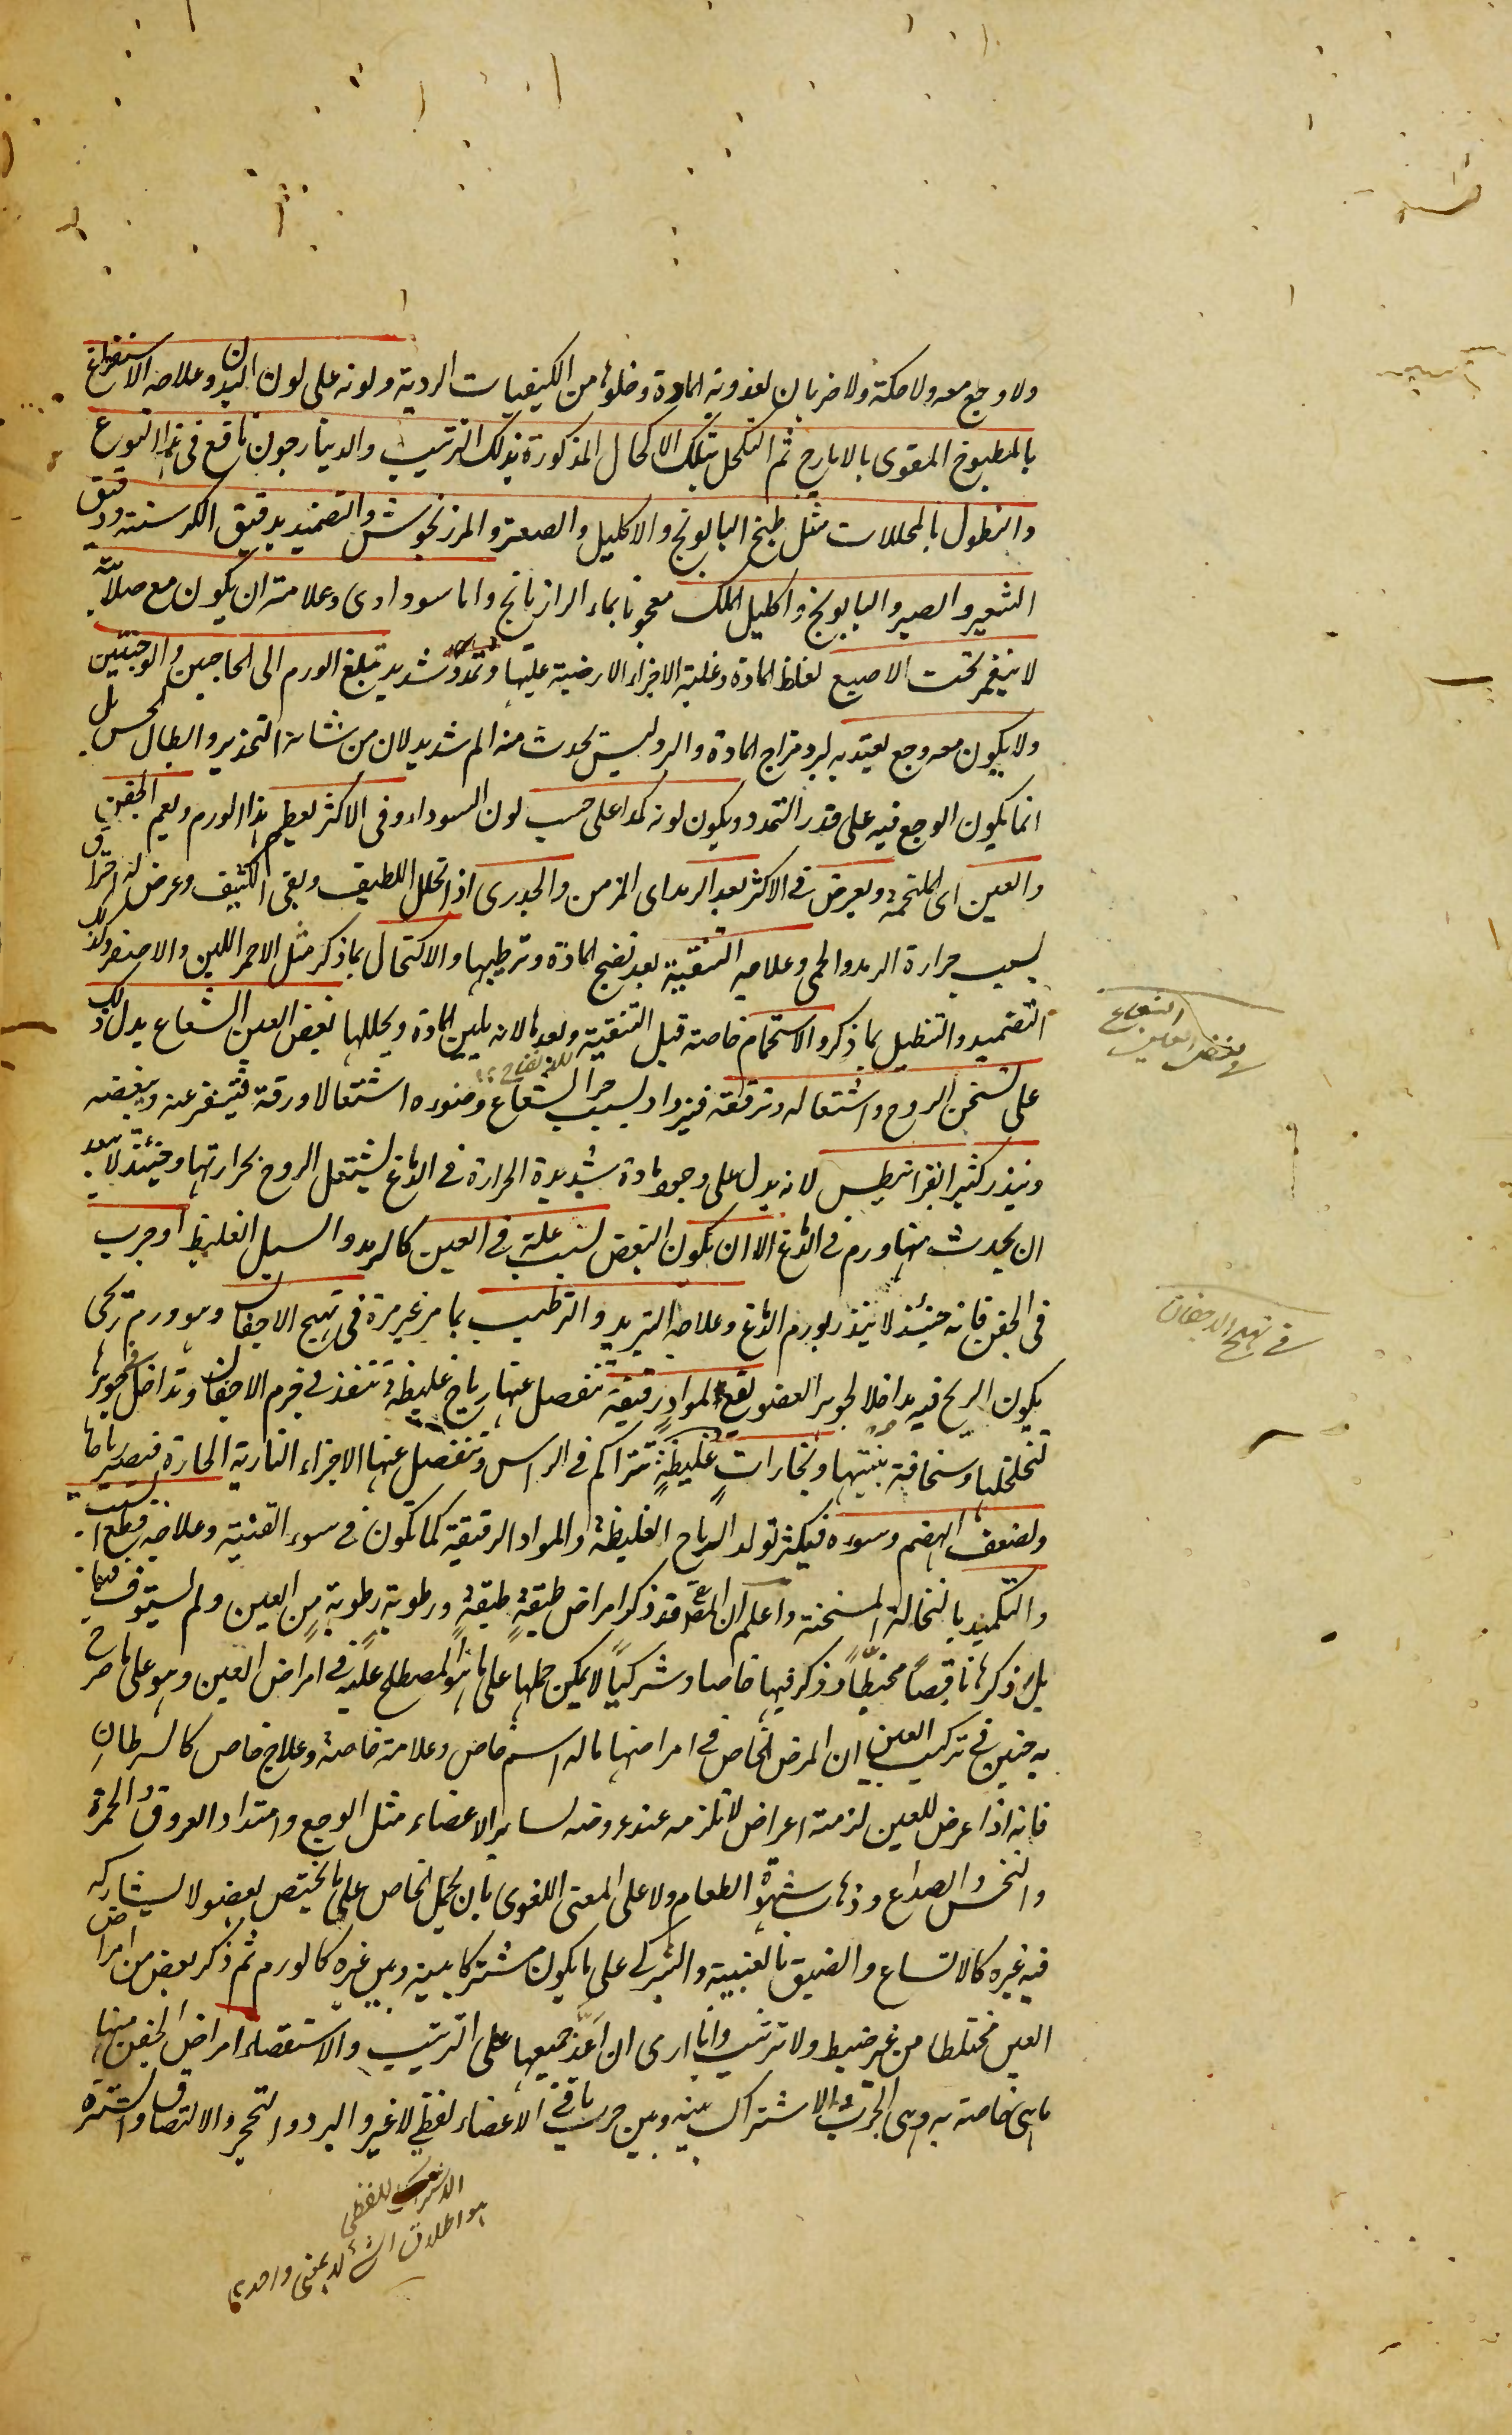 ولا وجع معه ولا حكة ولا ضربان لعذوبة المادة وخلوها من الكيفيات الردية ولونه على لون البدن وعلاجه الاستفراغ
بالمطبوخ المقوى بالايارج ثم التكحل بتلك الاكحال المذكورة بذلك الترتيب والدينارجون نافع فى هذا النوع
والنطول بالمحللات مثل طبخ البابونج والاكليل والصعتر والمرزنجوش والتضميد بدقيق الكرسنه ودقيق
الشعير والصبر والبابونج واكليل الملك معجونا بماء الرازيانج واما سوداوى وعلامته ان يكون مع صلابة
لا ينغمز تحت الاصبع لغلظ المادة وغلبة الاجزاء الارضية عليها وتمدد شديد تبلغ الورم الى الحاجبين والوجنتين
ولا يكون معه وجع يعتد به لبرد مزاج المادة والبرد ليس يحدث منه الم شديد لان من شانه التخدير وابطال الحس بل
انما يكون الوجع فيه على قدر التمدد ويكون لونه كمدا على حسب لون السوداء وفى الاكثر يعظم هذا الورم ويعم الجفن
والعين اى الملتحمة ويعرض فى الاكثر بعد الرمد اى المزمن والجدرى اذا تحلل اللطيف وبقى الكثيف وعرض له احتراق
بسبب حرارة الرمد والحمى وعلاجه التنقية بعد نضج المادة وترطيبها والاكتحال بما ذكر مثل الاحمر اللين والاصفر وكذلك
التضميد والتنطيل بما ذكر والاستحمام خاصة قبل التنقية وبعدها لانه يلين المادة ويحللها بغض العين الشعاع يدل ذلك
على تسخن الروح واشتعاله وترققه فيزداد بسبب حر الشعاع وضوءه اشتعالا ورقة فيتنفر عنه ويبغضه
وينذر كثيرا بقرانيطس لانه يدل على وجود مادة شديدة الحرارة فى الدماغ يشتعل الروح بحرارتها وحينئذ لا يبعد
ان يحدث منها ورم فى الدماغ الا ان يكون البغض لسبب علة فى العين كالرمد والسبل الغليظ او جرب
فى الجفن فانه حينئذ لا ينذر بورم الدماغ وعلاجه التبريد والترطيب بما مر غير مرة فى تهيج الاجفان وهو ورم ريحى
يكون الريح فيه مداخلا لجوهر العضو يقع لمواد رقيقة تنفصل عنها رياح غليظة تنفذ فى جرم الاجفان وتداخل جوهرها
لتخلخلها وسخافة بنيتها وبخارات غليظة تتراكم فى الراس وتنفصل عنها الاجزاء النارية الحارة فتصير رياحا
ولضعف الهضم وسوءه فيكثر تولد الرياح الغليظة والمواد الرقيقة كما تكون فى سوء القنية وعلاجه قطع السبب
والتكميد بالنخالة المسخنة واعلم ان المصنف قد ذكر امراض طبقة طبقة ورطوبة رطوبة من العين ولم يستوفها
بل ذكرها ناقصا مختلطا وذكر فيها خاصا وشركيا لا يمكن حملها على ما هو المصطلح عليه فى امراض العين وهو على ما صرح
به حنين فى تركيب العين ان المرض الخاص فى امراضها ما له اسم خاص وعلامة خاصة وعلاج خاص كالسرطان
فانه اذا عرض للعين لزمته اعراض لا تلزمه عند عروضه لساير الاعضاء مثل الوجع وامتداد العروق والحمرة
والنخس والصداع وذهاب شهوة الطعام ولا على المعنى اللغوى بان يحمل الخاص على ما يختص بعضو لا يشاركه
فيه غيره كالاتساع والضيق بالعنبية والشركى على ما يكون مشتركا بينه وبين غيره كالورم ثم ذكر بعض من امراض
العين مختلطا من غير ضبط ولا ترتيب وانا ارى ان اعد جميعها على الترتيب والاستقصاء امراض الجفن منها
ما هى خاصة به وهى الجرب والاشتراك بينه وبين جرب باقى الاعضاء لفظى لا غير والبرد والتحجر والالتصاق والشترة
بغض العين الشعاع
فى تهيج الاجفان
الاشتراك اللفظى
هو اطلاق